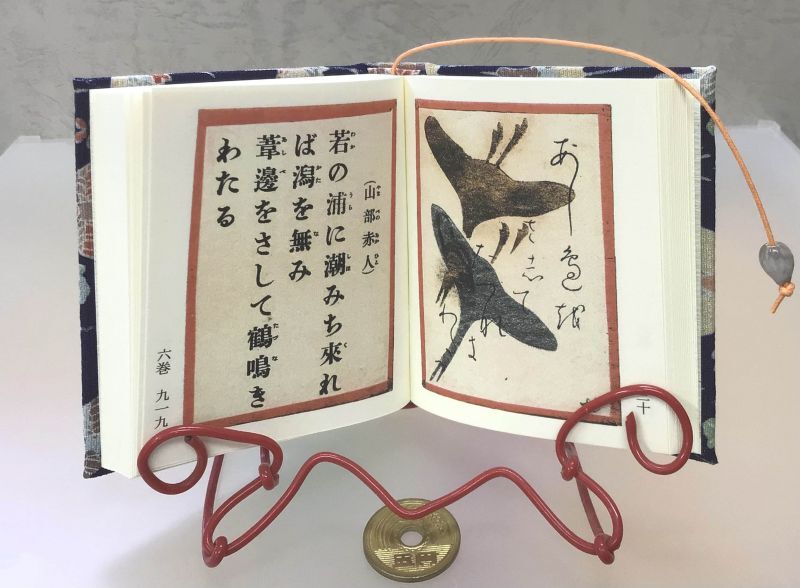 二十
あし邊越
さ志て
(山部赤人)
若の浦に潮みち來れ
ば潟を無み
葦邊をさして鶴鳴き
わたる
六巻 九一九
五円